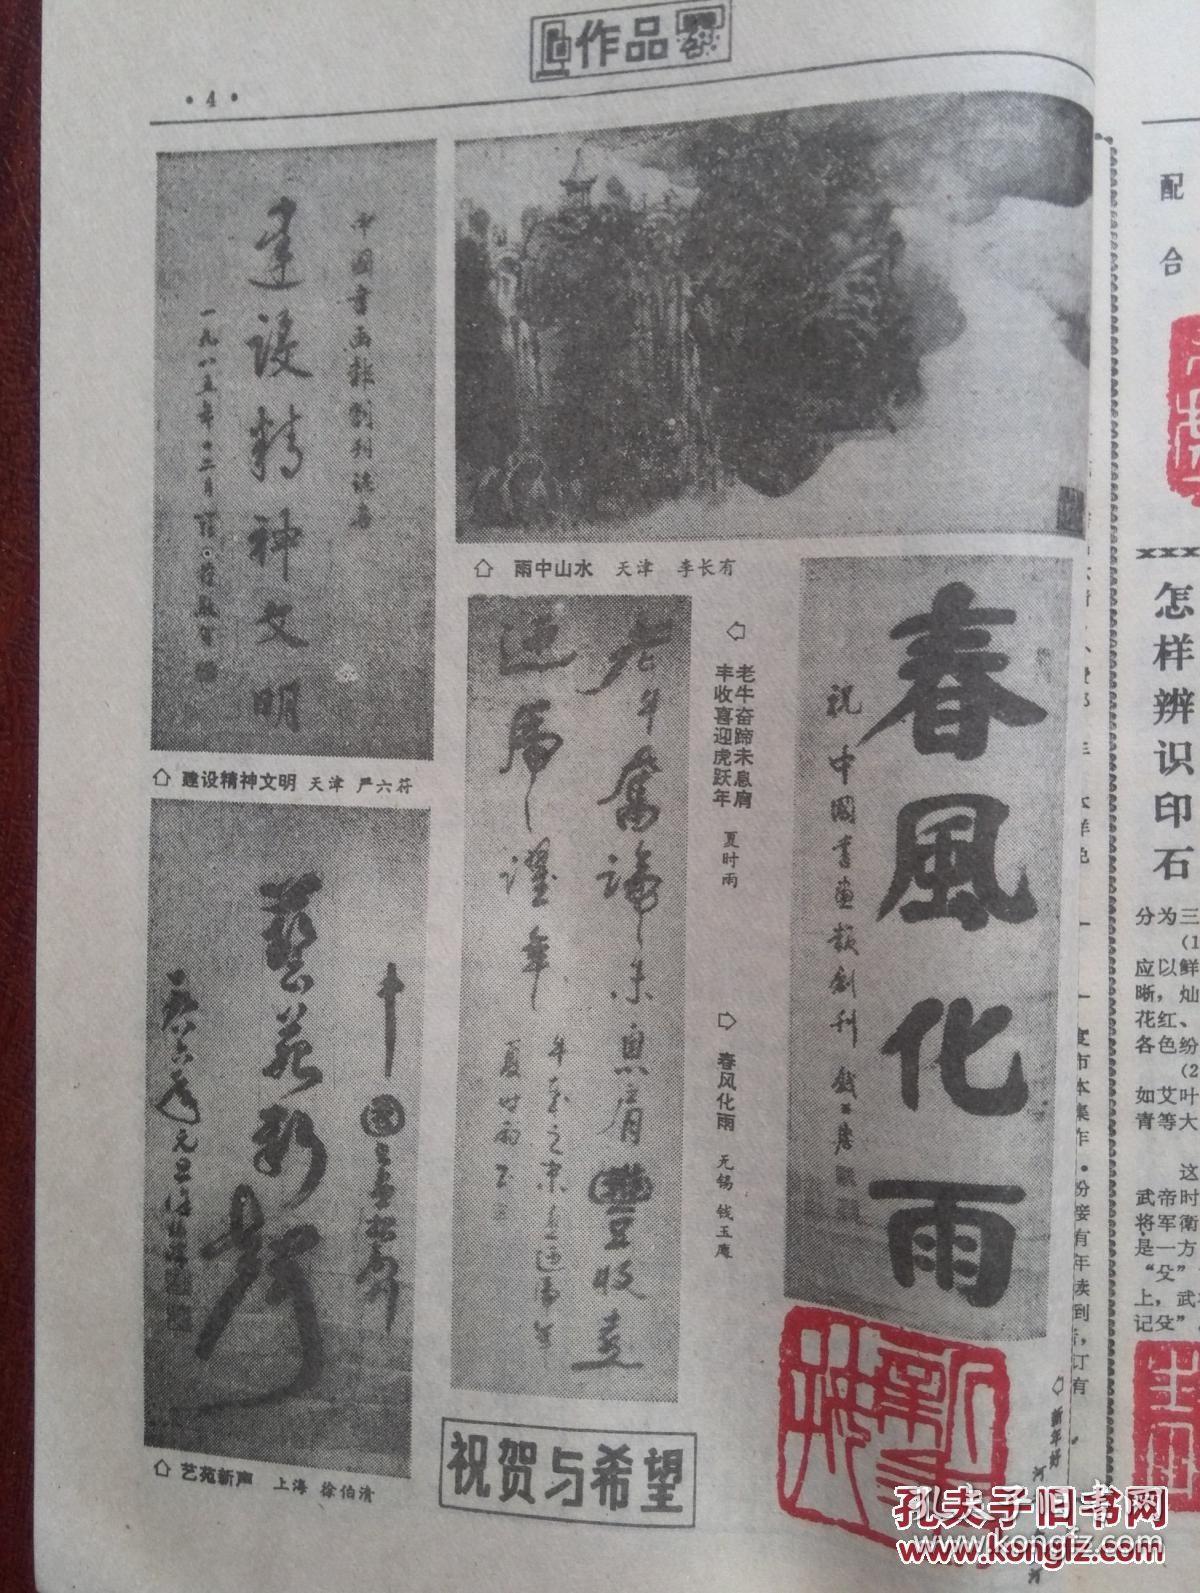 作品
·4·
中国书画报创刊志喜
建设精神文明
一九八五年十二月
⇧ 建设精神文明 天津 严六符
⇧ 雨中山水 天津 李长有
老牛奋蹄未息肩
丰收喜迎虎跃年
夏时雨
春風化雨
祝中國書畫報創刊
⇨ 春风化雨 无锡 钱玉庵
藝苑新聲
⇧ 艺苑新声 上海 徐伯清
祝贺与希望
新年好
河
配
合
怎样辨识印石
分为三
(1
应以鲜
晰，灿
花红、
各色纷
(2
如艾叶
青等大
这
武帝时
将军衛
是一方
“殳”
上，武
记殳”
孔夫子旧书网
www.kongfz.com